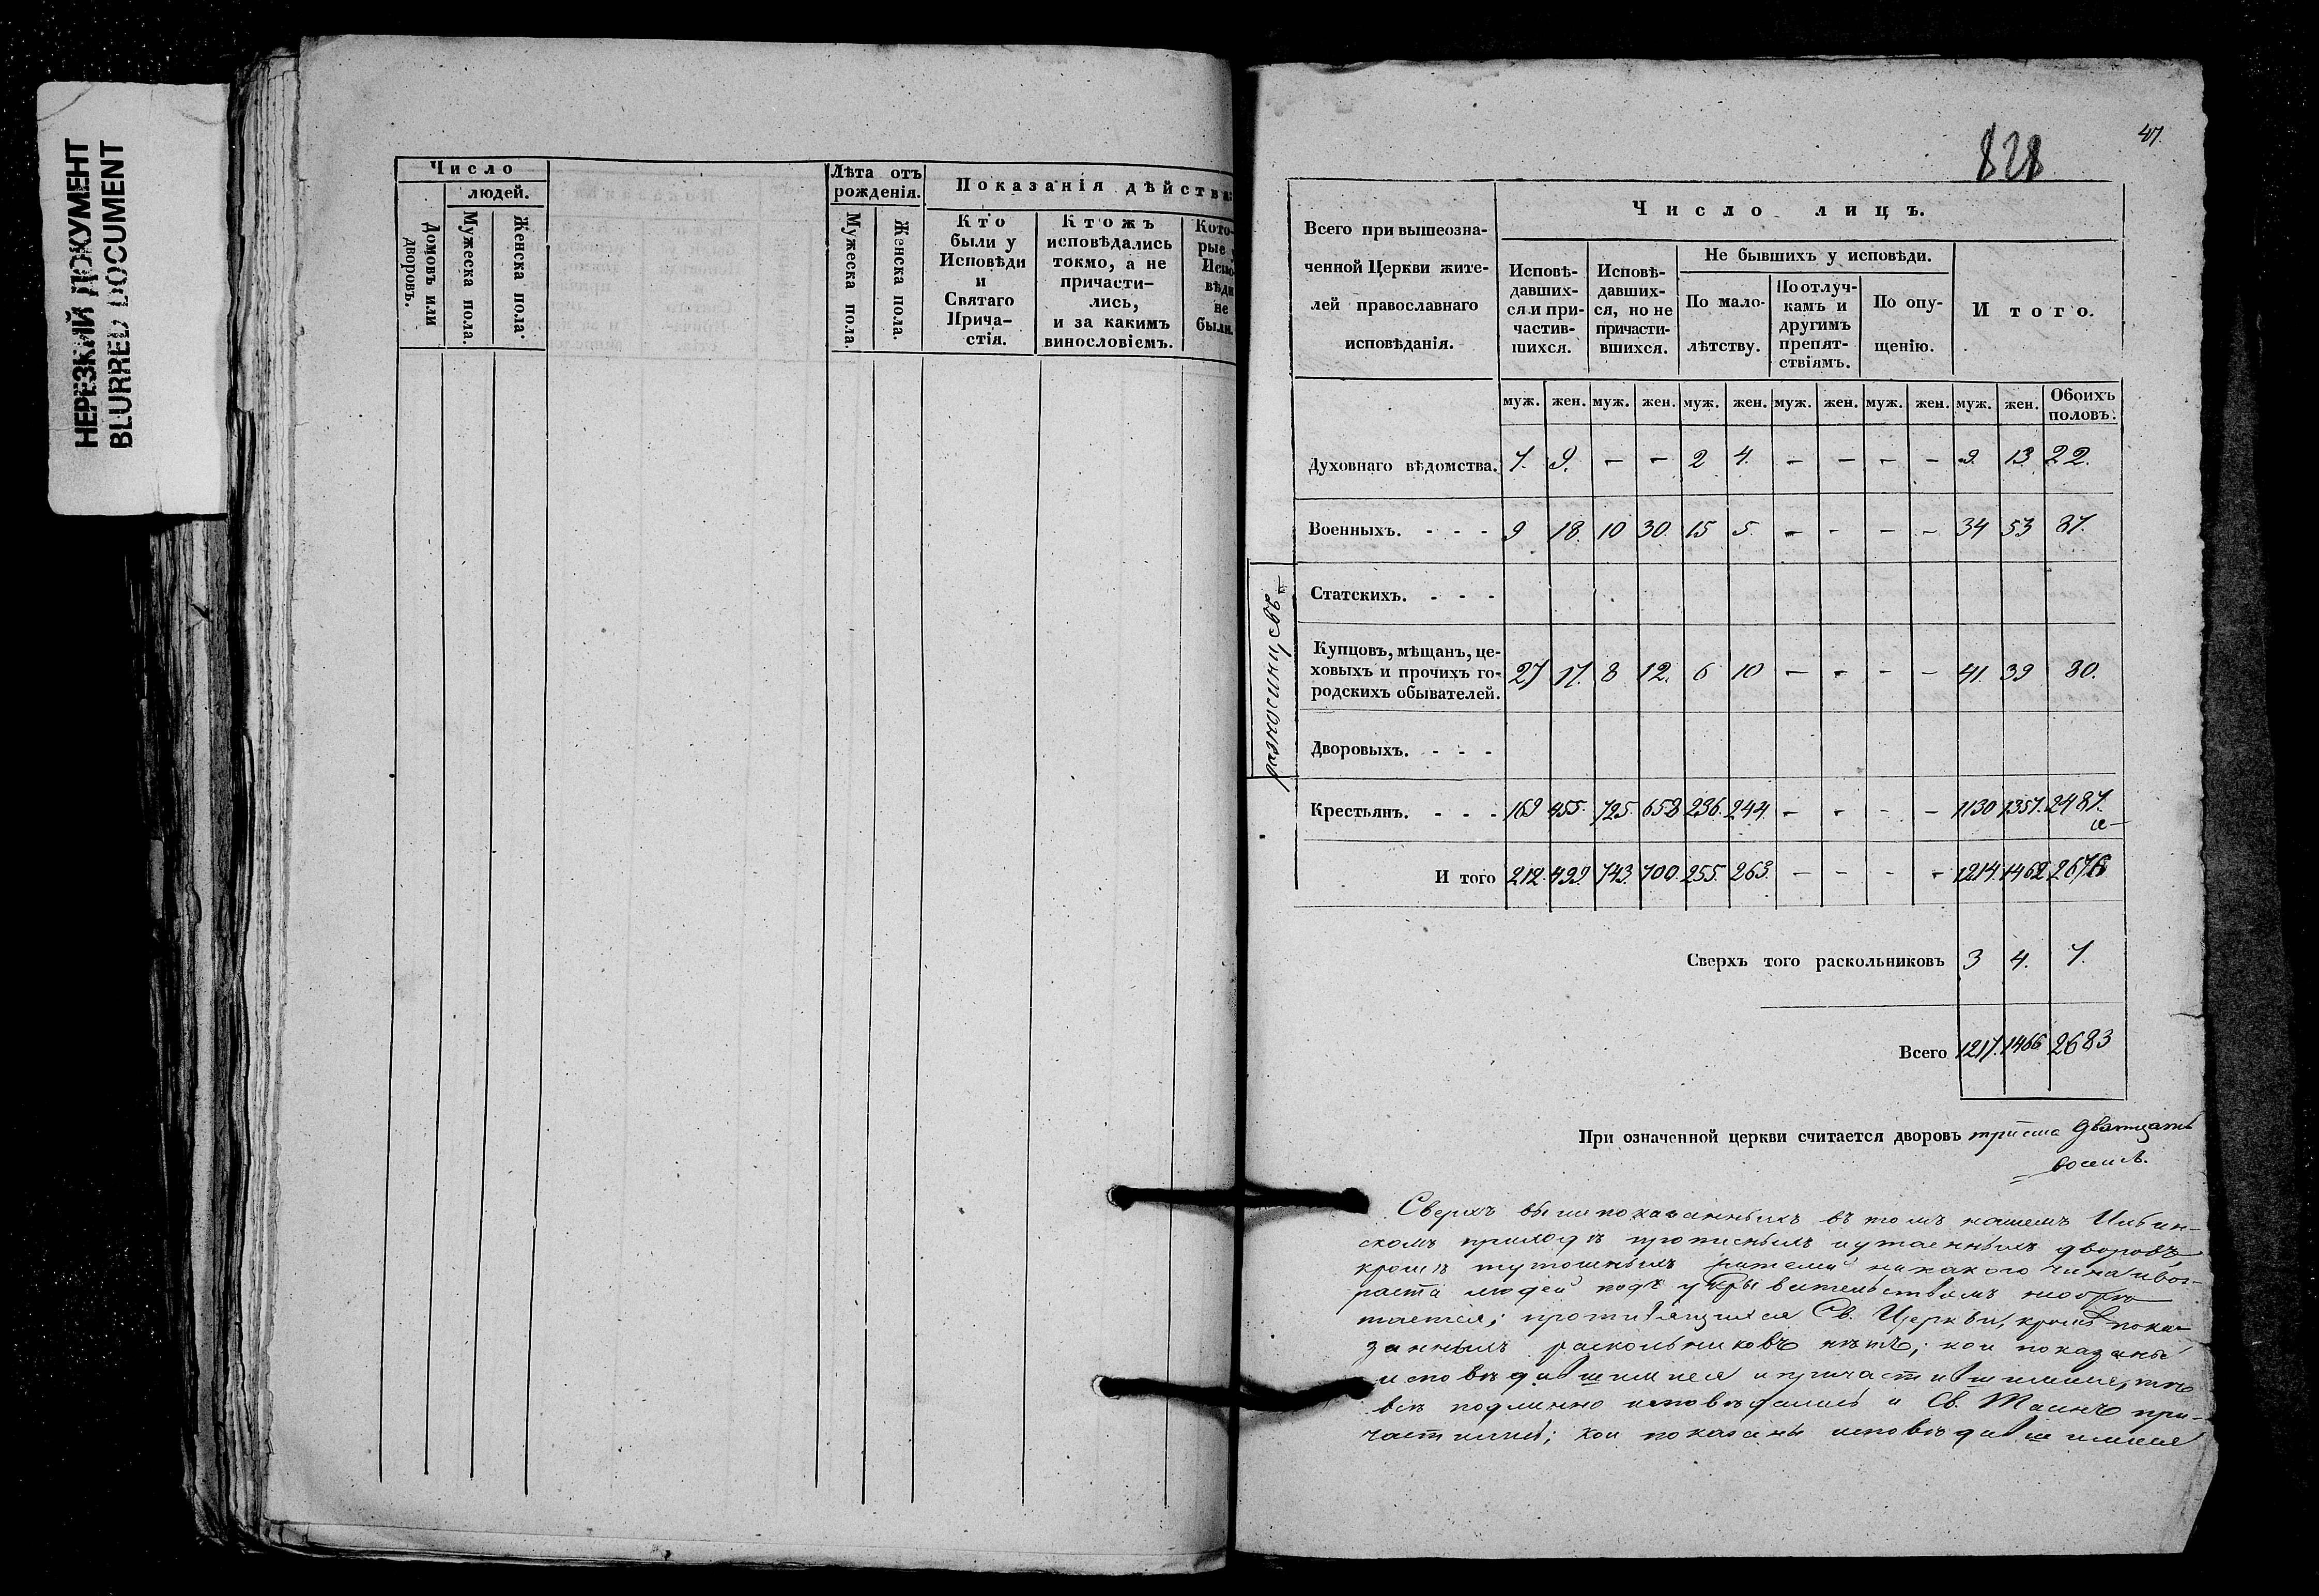 НЕРЕЗКИЙ ДОКУМЕНТ
BLURRED DOCUMENT
Число
людей.
Домовъ или дворовъ.
Мужеска пола.
Женска пола.
Лѣта отъ рожденія.
Мужеска пола.
Женска пола.
Показанія дѣйства
Кто
были у
Исповѣди
и
Святаго
Прича-
стія.
Ктожъ
исповѣдались
токмо, а не
причасти-
лись,
и за какимъ
винословіемъ.
Кото-
рые у
Испо-
вѣди
не
были.
47.
828
Всего при вышеозна-
ченной Церкви жите-
лей православнаго
исповѣданія.
Число лицъ.
Исповѣ-
давших-
ся и при-
частив-
шихся.
Исповѣ-
давших-
ся, но не
причасти-
вшихся.
Не бывшихъ у исповѣди.
По мало-
лѣтству.
По отлуч-
камъ и
другимъ
препят-
ствіямъ.
По опу-
щенію.
Итого.
муж. жен. муж. жен. муж. жен. муж. жен. муж. жен. муж. жен. Обоихъ половъ.
Духовнаго вѣдомства. 7. 9. - - 2 4. - - - - 9 13 22.
Военныхъ. - - - 9 18. 10 30. 15 5. - - - - 34 53 87.
Статскихъ. - - -
разносинцевъ
Купцовъ, мѣщанъ, це-
ховыхъ и прочихъ го-
родскихъ обывателей. 27 17. 8 12. 6 10 - - - - 41. 39 80.
Дворовыхъ. - - -
Крестьянъ. - - - 169 455. 725. 658 236. 244. - - - - 1130 1357. 2487.
И того 212. 499. 743. 700. 255. 263. - - - - 1214. 1462 2676
Сверхъ того раскольниковъ 3 4. 7.
Всего 1217. 1466 2683
При означенной церкви считается дворовъ триста дватцать
восемь.
Сверхъ вышепоказанныхъ въ томъ нашемъ Ильин-
скомъ приходѣ прописныхъ и утаенныхъ дворовъ,
кромѣ тутошныхъ жителей никакого чина и воз-
раста людей подъ укрывательствомъ необрѣ
тается; противящихся Св. Церкви, кромѣ пока-
занныхъ раскольниковъ нѣтъ; кои показаны
исповѣдавшимися и причастившимися, тѣ
всѣ подлинно исповѣдались и Св. Таинъ при-
частились; кои показаны исповѣдавшимися